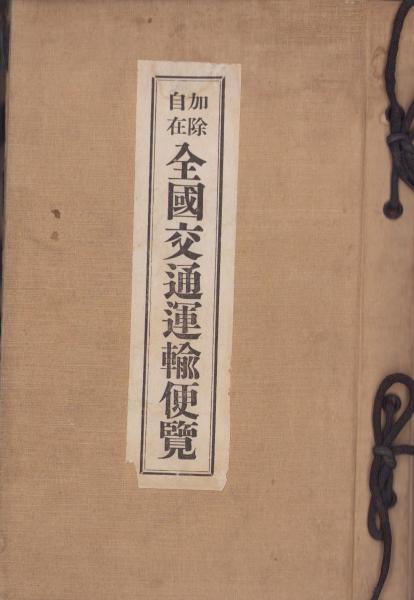 加除
自在
全國交通運輸便覽